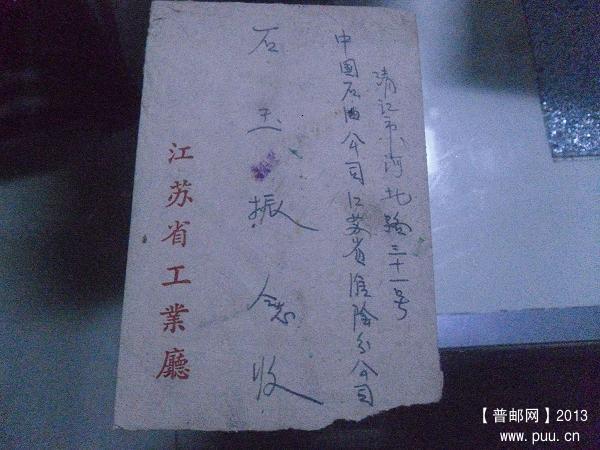 清江市河北路三十一号
中国石油公司江苏省淮阴分公司
石玉振 收
江苏省工業廳
【普邮网】2013
www.puu.cn